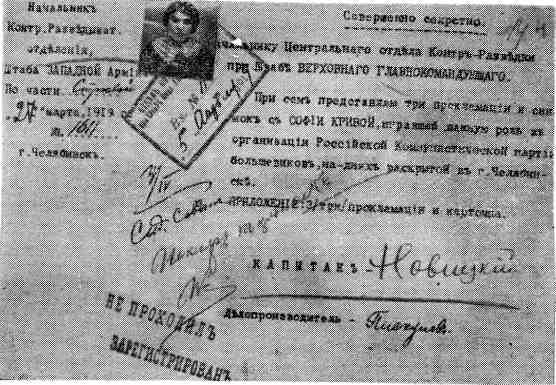 Начальникъ
Контр.Развѣдыват.
отдѣленія,
Штаба ЗАПАДНОЙ Арміи
По части
"27" марта, 1919
№
г.Челябинск.
Совершенно секретно.
Начальнику Центральнаго отдѣла Контръ-Развѣдки
при Штабѣ ВЕРХОВНАГО ГЛАВНОКОМАНДУЮЩАГО.
При семъ представляю три прокламаціи и сни-
мокъ съ СОФІИ КРИВОЙ, игравшей важную роль въ
организаціи Россійской Коммунистической партіи
большевиков, на-днях раскрытой в г.Челябин-
скѣ.
ПРИЛОЖЕНІЕ: 3/три/прокламаціи и карточка.
КАПИТАНЪ - Новицкій
Дѣлопроизводитель -
НЕ ПРОХОДИЛЪ
ЗАРЕГИСТРИРОВАНЪ